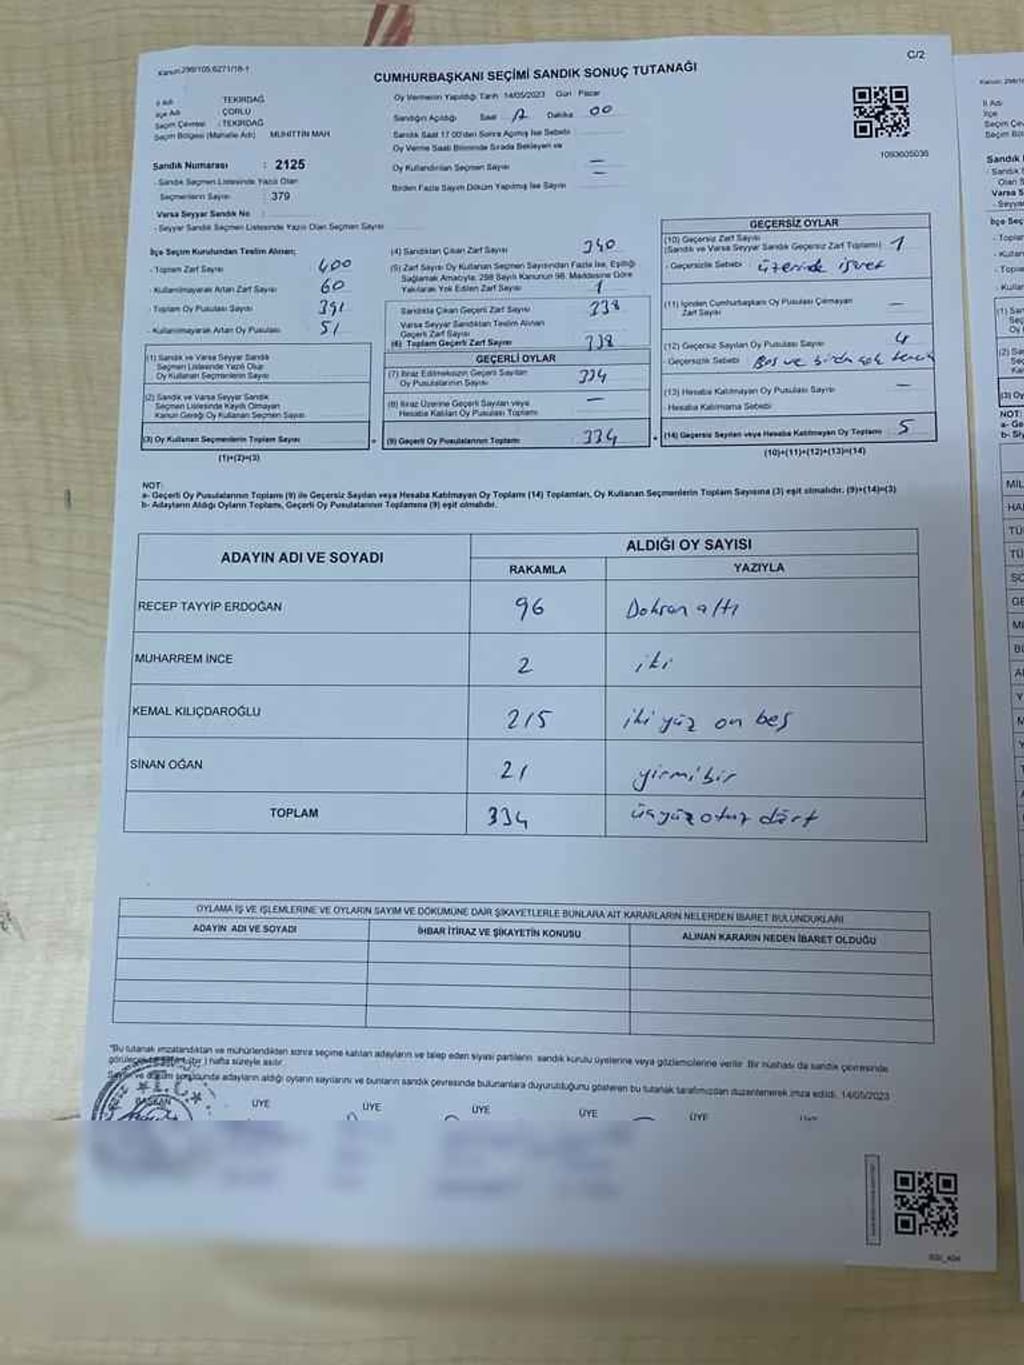 Kanun:298/105,6271/18-1
C/2
CUMHURBAŞKANI SEÇİMİ SANDIK SONUÇ TUTANAĞI
İl Adı : TEKİRDAĞ
İlçe Adı : ÇORLU
Seçim Çevresi : TEKİRDAĞ
Seçim Bölgesi (Mahalle Adı) MUHİTTİN MAH.
Sandık Numarası : 2125
- Sandık Seçmen Listesinde Yazılı Olan
Seçmenlerin Sayısı : 379
Varsa Seyyar Sandık No :
- Seyyar Sandık Seçmen Listesinde Yazılı Olan Seçmen Sayısı
Oy Vermenin Yapıldığı Tarih 14/05/2023 Gün : Pazar
Sandığın Açıldığı Saat Dakika 00
Sandık Saat 17.00'den Sonra Açılmış İse Sebebi
Oy Verme Saati Bitiminde Sırada Bekleyen ve
Oy Kullandırılan Seçmen Sayısı —
Birden Fazla Sayım Döküm Yapılmış İse Sayısı —
İlçe Seçim Kurulundan Teslim Alınan;
- Toplam Zarf Sayısı 400
- Kullanılmayarak Artan Zarf Sayısı 60
- Toplam Oy Pusulası Sayısı 391
- Kullanılmayarak Artan Oy Pusulası 51
(1) Sandık ve Varsa Seyyar Sandık
Seçmen Listesinde Yazılı Olup
Oy Kullanan Seçmenlerin Sayısı
(2) Sandık ve Varsa Seyyar Sandık
Seçmen Listesinde Kayıtlı Olmayan
Kanun Gereği Oy Kullanan Seçmen Sayısı
(3) Oy Kullanan Seçmenlerin Toplam Sayısı
(1)+(2)=(3)
(4) Sandıktan Çıkan Zarf Sayısı 340
(5) Zarf Sayısı Oy Kullanan Seçmen Sayısından Fazla İse, Eşitliği
Sağlamak Amacıyla; 298 Sayılı Kanunun 98. Maddesine Göre
Yakılarak Yok Edilen Zarf Sayısı 1
Sandıkta Çıkan Geçerli Zarf Sayısı 338
Varsa Seyyar Sandıktan Teslim Alınan
Geçerli Zarf Sayısı
(6) Toplam Geçerli Zarf Sayısı 338
GEÇERLİ OYLAR
(7) İtiraz Edilmeksizin Geçerli Sayılan
Oy Pusulalarının Sayısı 334
(8) İtiraz Üzerine Geçerli Sayılan veya
Hesaba Katılan Oy Pusulası Toplamı —
= (9) Geçerli Oy Pusulalarının Toplamı 334
GEÇERSİZ OYLAR
(10) Geçersiz Zarf Sayısı
(Sandık ve Varsa Seyyar Sandık Geçersiz Zarf Toplamı) 1
- Geçersizlik Sebebi üzerinde işaret
(11) İçinden Cumhurbaşkanı Oy Pusulası Çıkmayan
Zarf Sayısı —
(12) Geçersiz Sayılan Oy Pusulası Sayısı 4
- Geçersizlik Sebebi Boş ve birden çok tercih
(13) Hesaba Katılmayan Oy Pusulası Sayısı —
- Hesaba Katılmama Sebebi
+ (14) Geçersiz Sayılan veya Hesaba Katılmayan Oy Toplamı 5
(10)+(11)+(12)+(13)=(14)
NOT:
a- Geçerli Oy Pusulalarının Toplamı (9) ile Geçersiz Sayılan veya Hesaba Katılmayan Oy Toplamı (14) Toplamları, Oy Kullanan Seçmenlerin Toplam Sayısına (3) eşit olmalıdır. (9)+(14)=(3)
b- Adayların Aldığı Oyların Toplamı, Geçerli Oy Pusulalarının Toplamına (9) eşit olmalıdır.
ADAYIN ADI VE SOYADI
ALDIĞI OY SAYISI
RAKAMLA YAZIYLA
RECEP TAYYİP ERDOĞAN 96 Doksan altı
MUHARREM İNCE 2 iki
KEMAL KILIÇDAROĞLU 215 iki yüz on beş
SİNAN OĞAN 21 yirmibir
TOPLAM 334 üçyüz otuz dört
OYLAMA İŞ VE İŞLEMLERİNE VE OYLARIN SAYIM VE DÖKÜMÜNE DAİR ŞİKAYETLERLE BUNLARA AİT KARARLARIN NELERDEN İBARET BULUNDUKLARI
ADAYIN ADI VE SOYADI İHBAR İTİRAZ VE ŞİKAYETİN KONUSU ALINAN KARARIN NEDEN İBARET OLDUĞU
*Bu tutanak imzalandıktan ve mühürlendikten sonra seçime katılan adayların ve talep eden siyasi partilerin sandık kurulu üyelerine veya gözlemcilerine verilir. Bir nüshası da sandık çevresinde
hafta süreyle asılır.
adayların aldığı oyların sayılarını ve bunların sandık çevresinde bulunanlara duyurulduğunu gösteren bu tutanak tarafımızdan düzenlenerek imza edildi. 14/05/2023
BAŞKAN ÜYE ÜYE ÜYE ÜYE ÜYE